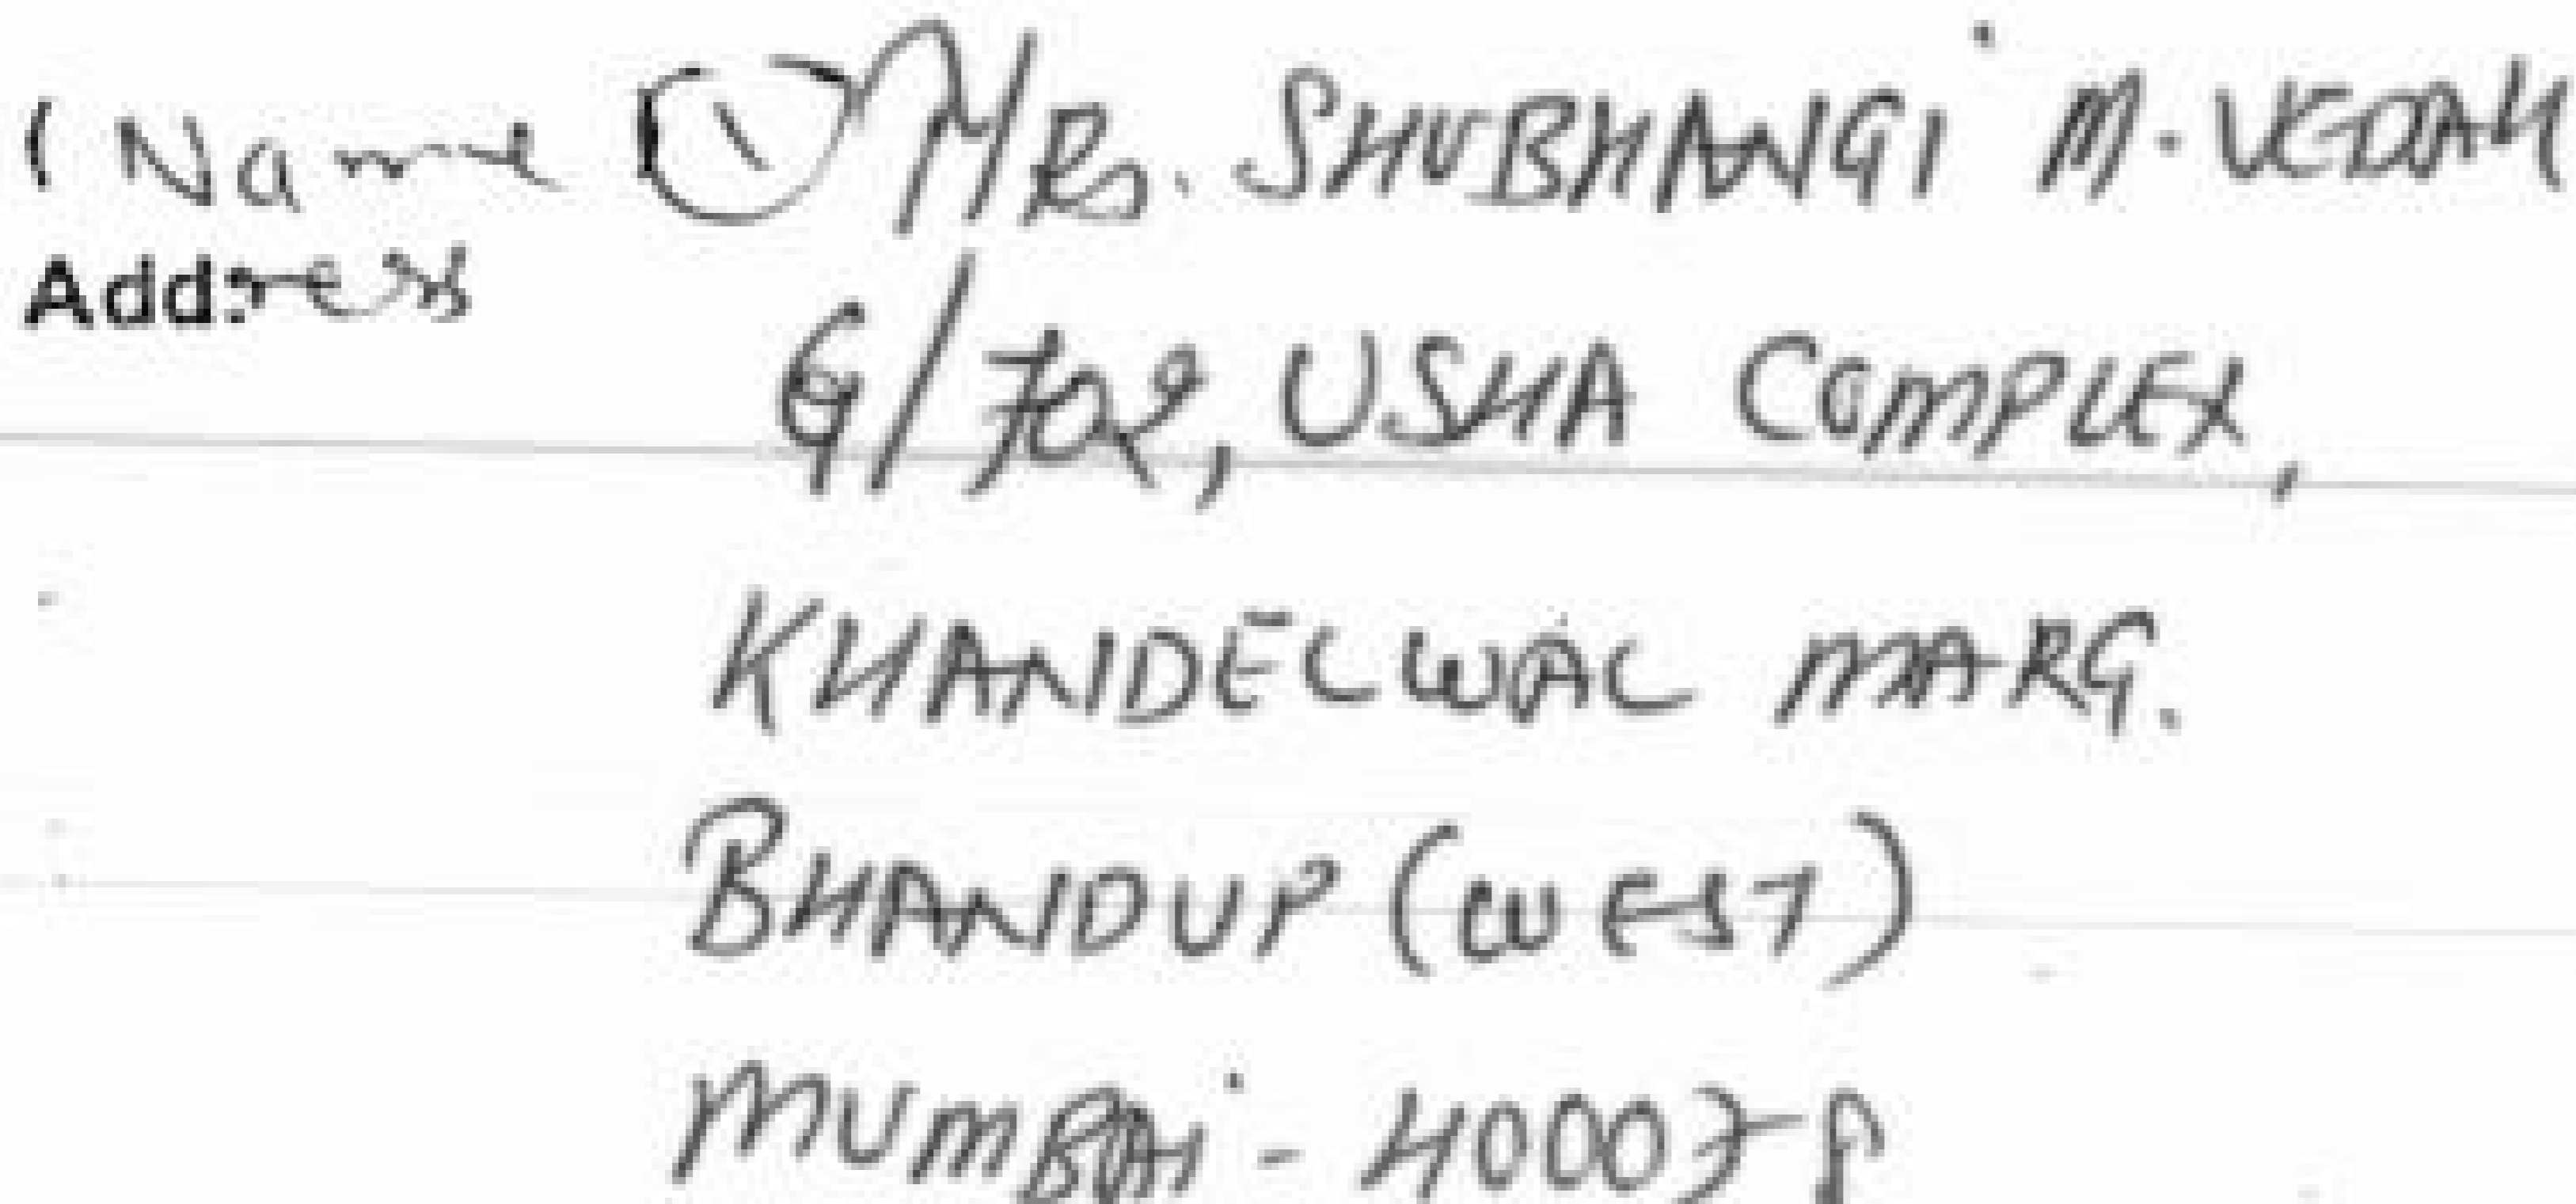 (Name ① Mrs. SHUBHANGI M. VEDAK
Address
G/702, USHA COMPLEX,
KHANDELWAL MARG.
BHANDUP (WEST)
MUMBAI - 400078